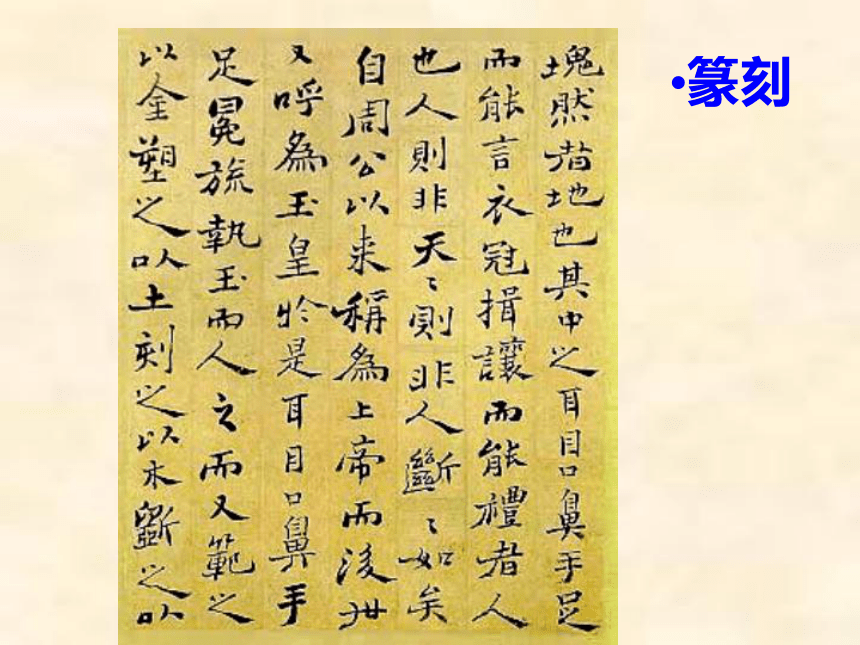 •篆刻
塊然者地也其中之耳目口鼻手足
而能言衣冠揖讓而能禮者人
也人則非天〻則非人斷〻如矣
自周公以来稱為上帝而後世
又呼為玉皇於是耳目口鼻手
足冕旒執玉而人之而又範之
以金塑之以土刻之以木斲之以